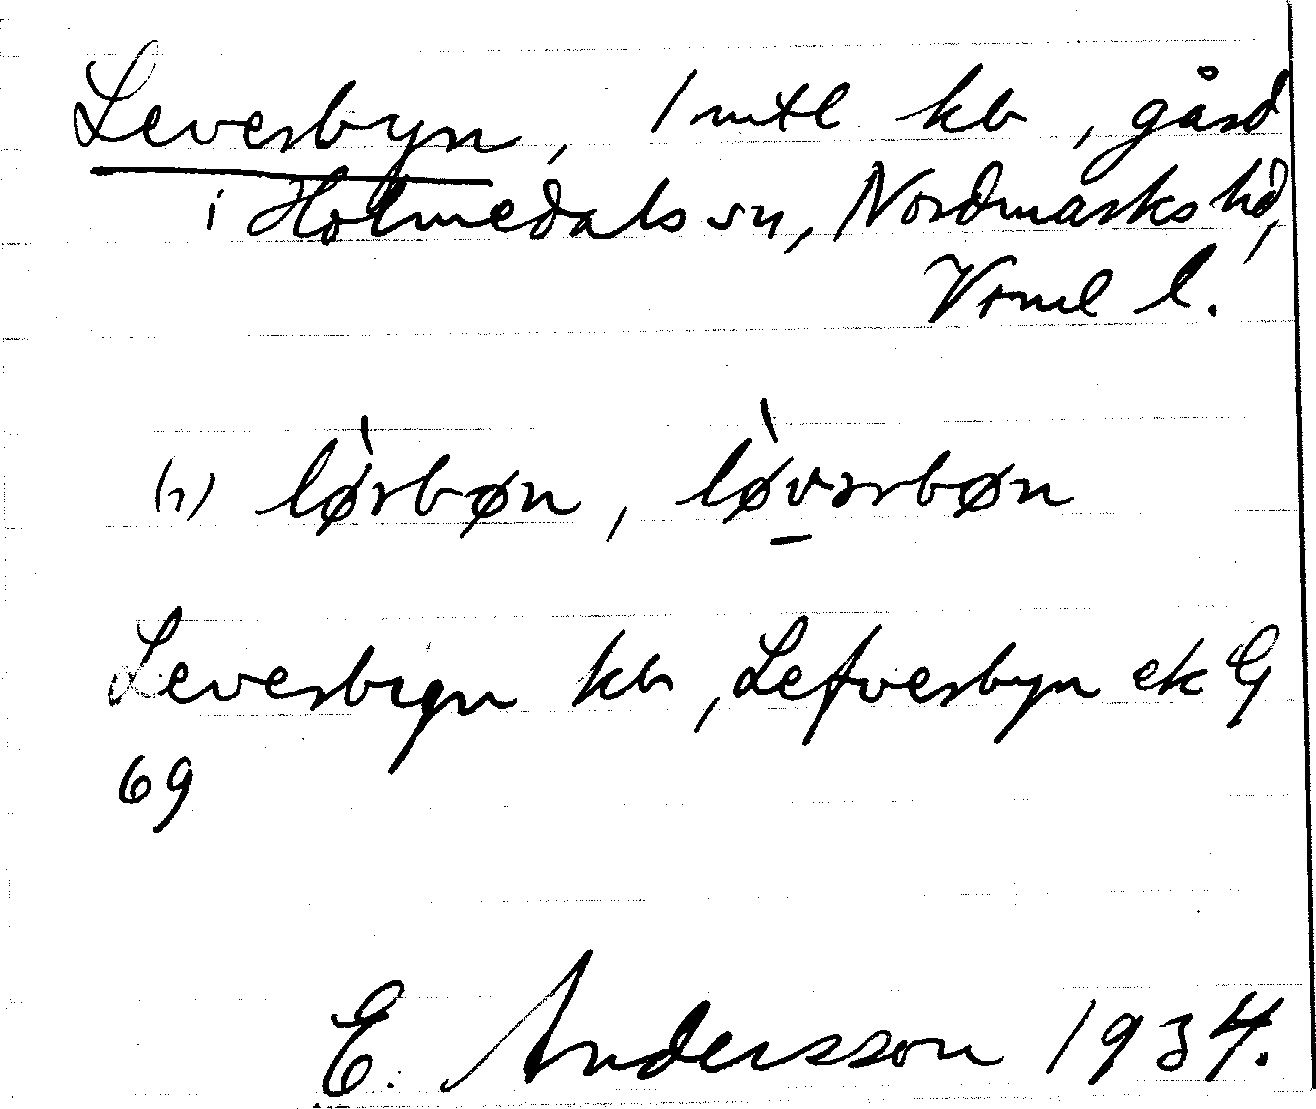 Leverbyn, 1 mtl kb, gård
i Holmedals sn, Nordmarks hd,
Vrml l.
(1) lø̀rbøn, lø̀vərbøn
Leverbyn kb, Lefverbyn ek G
69
E. Andersson 1934.